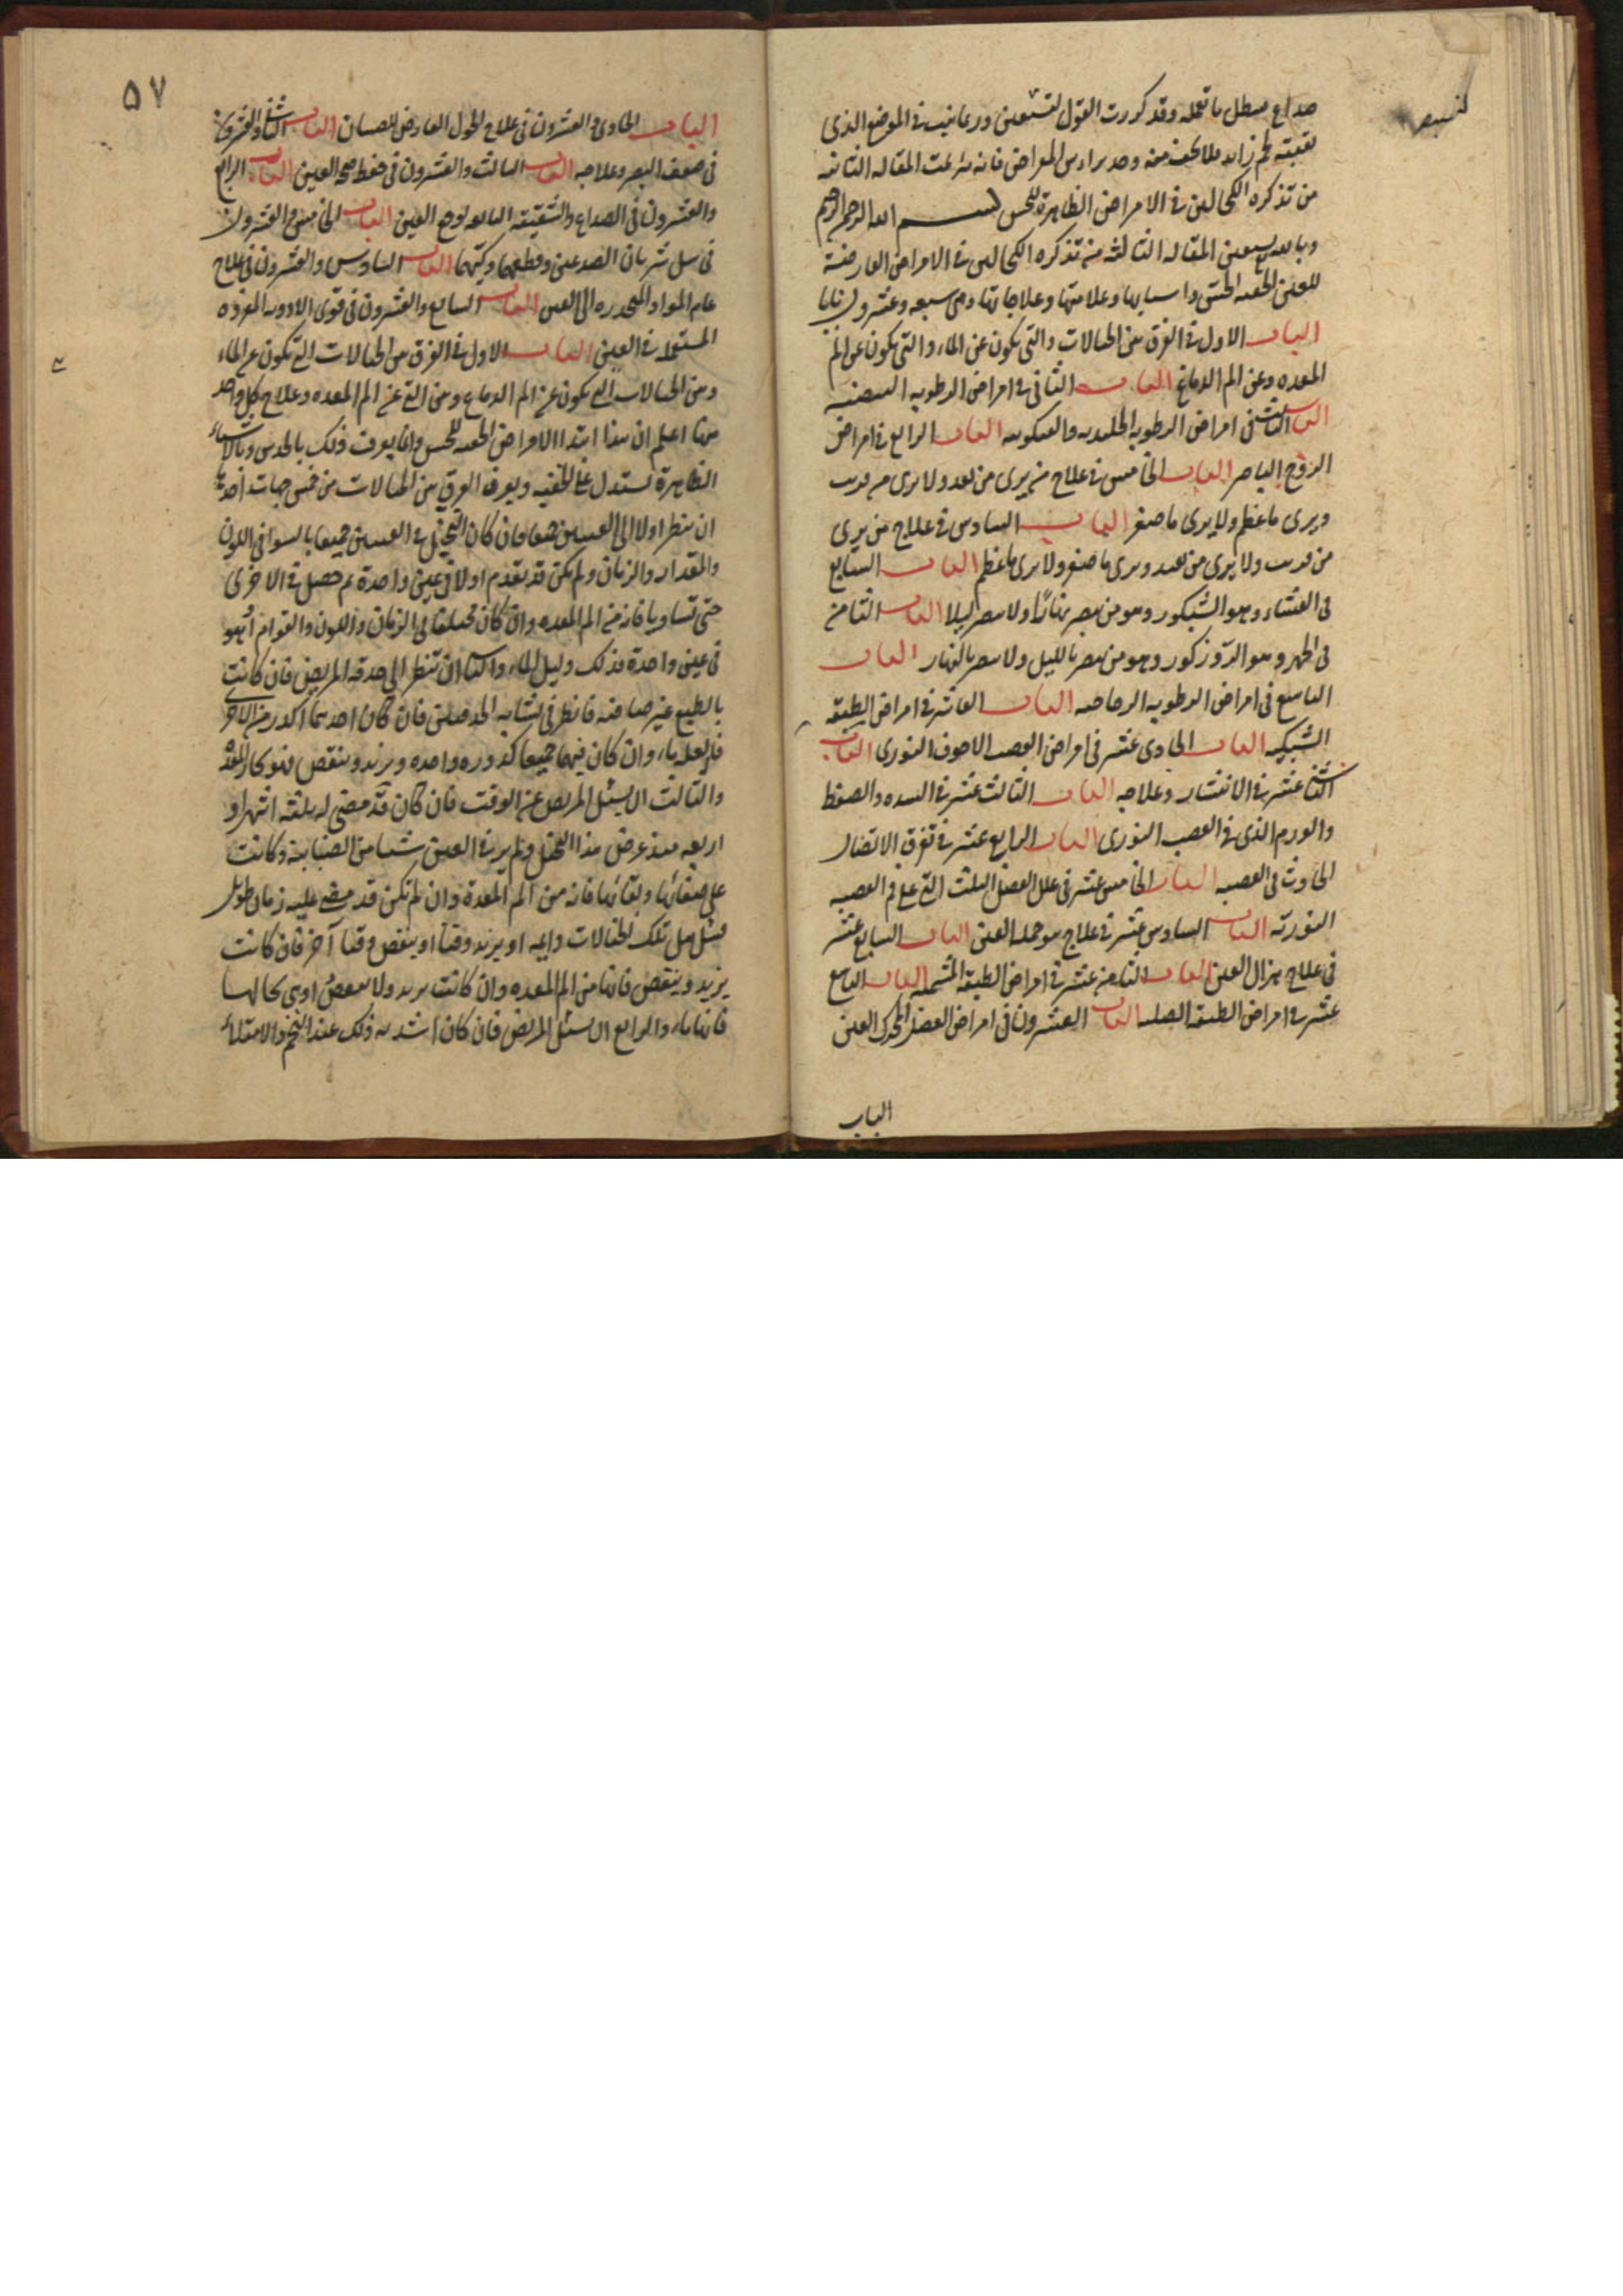 صداع مبطل ما تعمله وقد كررت القول لتستعين ورعانيت في الموضع الذي
من تذكره الكحالين في الامراض الظاهرة للحس بسم الله الرحمن الرحيم
وبالله نستعين المقاله الثالثه من تذكره الكحالين في الامراض العارضة
للعين الخفيه عن الحس واسبابها وعلامتها وعلاجاتها وهي سبعه وعشرون بابا
الباب الاول في الفرق بين الخيالات والتي تكون عن الماء والتي تكون عن الم
المعده وعن الم الدماغ الباب الثاني في امراض الرطوبه البيضيه
الباب الثالث في امراض الرطوبه الجليديه والعنكبوتيه الباب الرابع في امراض
الروح الباصر الباب الخامس في علاج من يرى من بعد ولا يرى من قريب
ويرى ما عظم ولا يرى ما صغر الباب السادس في علاج من يرى
من قريب ولا يرى من بعيد ويرى ما صغر ولا يرى ما عظم الباب السابع
في العشاء وهو الشبكور وهو من يبصر نهارًا ولا يبصر ليلا الباب الثامن
في الجهر وهو الروزكور وهو من يبصر بالليل ولا يبصر بالنهار الباب
التاسع في امراض الرطوبه الزجاجيه الباب العاشر في امراض الطبقه
الشبكيه الباب الحادي عشر في امراض العصب الاجوف النوري الباب
الثاني عشر في الانتشار وعلاجه الباب الثالث عشر في السده والضغط
والورم الذي في العصب النوري الباب الرابع عشر في تفرق الاتصال
الحادث في العصبه الباب الخامس عشر في علل العضل الثلث التي على فم العصبه
النوريه الباب السادس عشر في علاج جمله العين الباب السابع عشر
في علاج هزال العين الباب الثامن عشر في امراض الطبقه المشيميه الباب التاسع
عشر في امراض الطبقه الصلبه الباب العشرون في امراض العضل المحرك العين
الباب
٥٧
الباب الحادي والعشرون في علاج الحول العارض للصبيان الباب الثاني والعشرون
في ضعف البصر وعلاجه الباب الثالث والعشرون في حفظ صحه العين الباب الرابع
والعشرون في الصداع والشقيقه التابعه لوجع العين الباب الخامس والعشرون
في سل شريان الصدغين وقطعهما وكيهما الباب السادس والعشرون في علاج
عام المواد المنحدره الى العين الباب السابع والعشرون في قوى الادويه المفرده
المستعمله في العين الباب الاول في الفرق بين الخيالات التي تكون عن الماء
وبين الخيالات التي تكون عن الم الدماغ وبين التي عن الم المعده وعلاج كل واحد
منها اعلم ان هذا ابتدا الامراض الخفيه للحس وانما يعرف ذلك بالحدس وبالاشياء
الظاهرة يستدل على الخفيه ويعرف الفرق بين الخيالات من خمس جهات احدها
ان ينظر اولا الى العينين جميعا فان كان التخيل في العينين جميعا بالسوا في اللون
والمقدار والزمان ولم يكن قد تقدم اولا في عين واحدة ثم حصل في الاخرى
حتى تساويا فانه من الم المعده وان كان مختلفا في الزمان واللون والقوام او هو
في عين واحدة فذلك دليل الماء والثاني ان تنظر الى حدقه المريض فان كانت
بالطبع غير صافيه فانظر في تشابه الحدقتين فان كان احدهما اكدر من الاخرى
فالعله ماء وان كان فيهما جميعا كدوره واحده ويزيد وينقص فهو بخار المعده
والثالث ان يسئل المريض عن الوقت فان كان قد مضى له ثلثه اشهر او
اربعه منذ عرض هذا التخيل ولم ير في العين شيئا من الضبابيه وكانت
على صفائها ونقائها فانه من الم المعدة وان لم تكن قد مضى عليه زمان طويل
فسئل هل تلك الخيالات دايمه او يزيد وقتا او ينقص وقتا آخر فان كانت
يزيد وينقص فانها من الم المعده وان كانت يزيد ولا ينقص او هي بحالها
فانها ماء والرابع ان يسئل المريض فان كان اشد به ذلك عند التخم والامتلاء